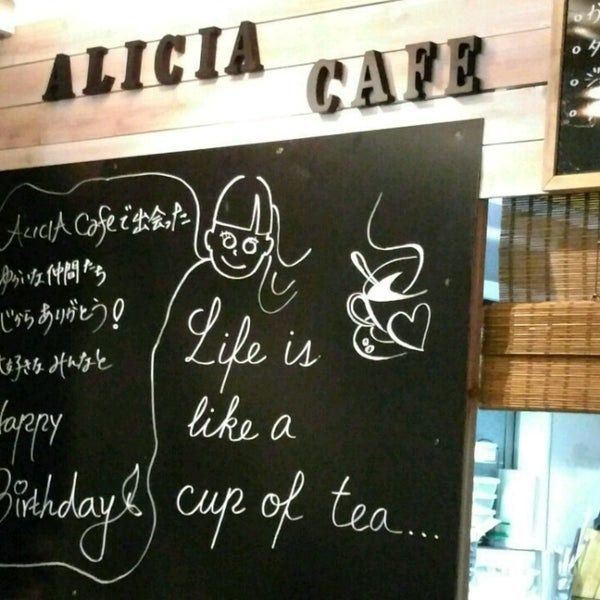 ALICIA CAFE
ALICIA Cafeで出会った
ゆかいな仲間たち
心からありがとう!
大好きなみんなと
Happy
Birthday
Life is
like a
cup of tea...